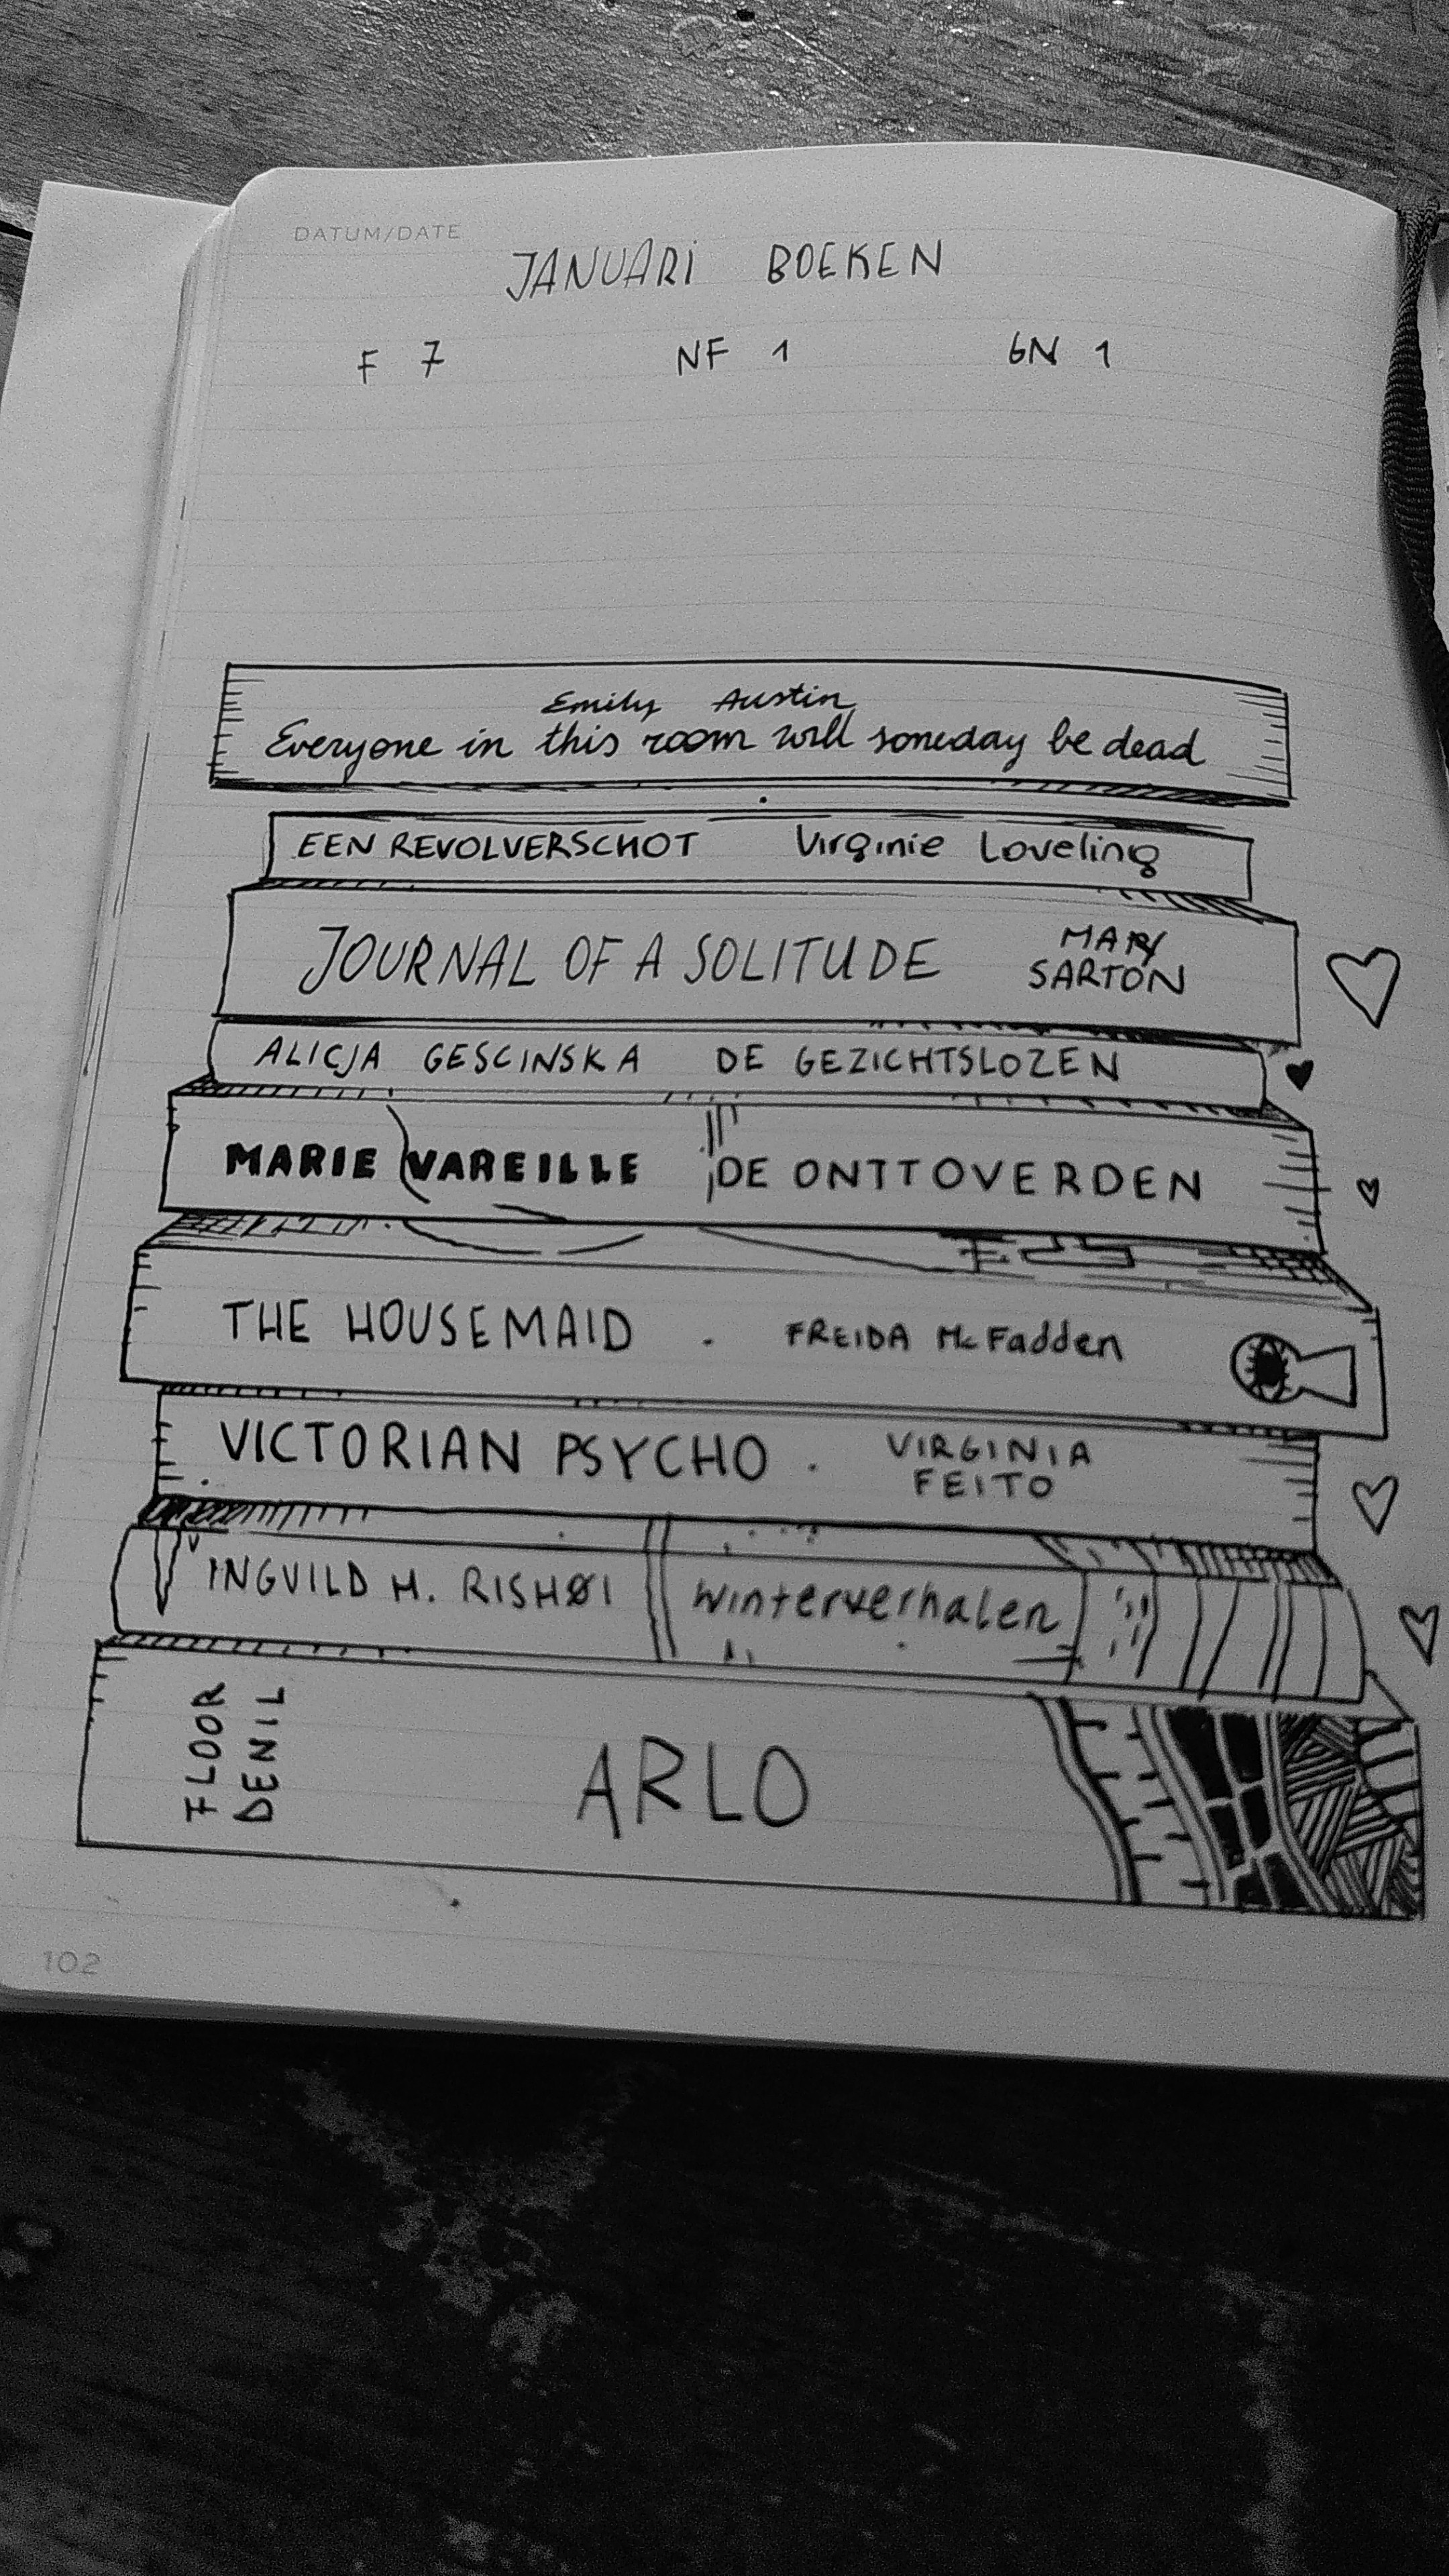 DATUM/DATE
JANUARI BOEKEN
F 7 NF 1 GN 1
Emily Austin
Everyone in this room will someday be dead
EEN REVOLVERSCHOT Virginie Loveling
JOURNAL OF A SOLITUDE MARY
SARTON
ALICJA GESCINSKA DE GEZICHTSLOZEN
MARIE VAREILLE DE ONTTOVERDEN
THE HOUSEMAID . FREIDA McFadden
VICTORIAN PSYCHO . VIRGINIA
FEITO
INGVILD H. RISHØI Winterverhalen
FLOOR
DENIL
ARLO
102